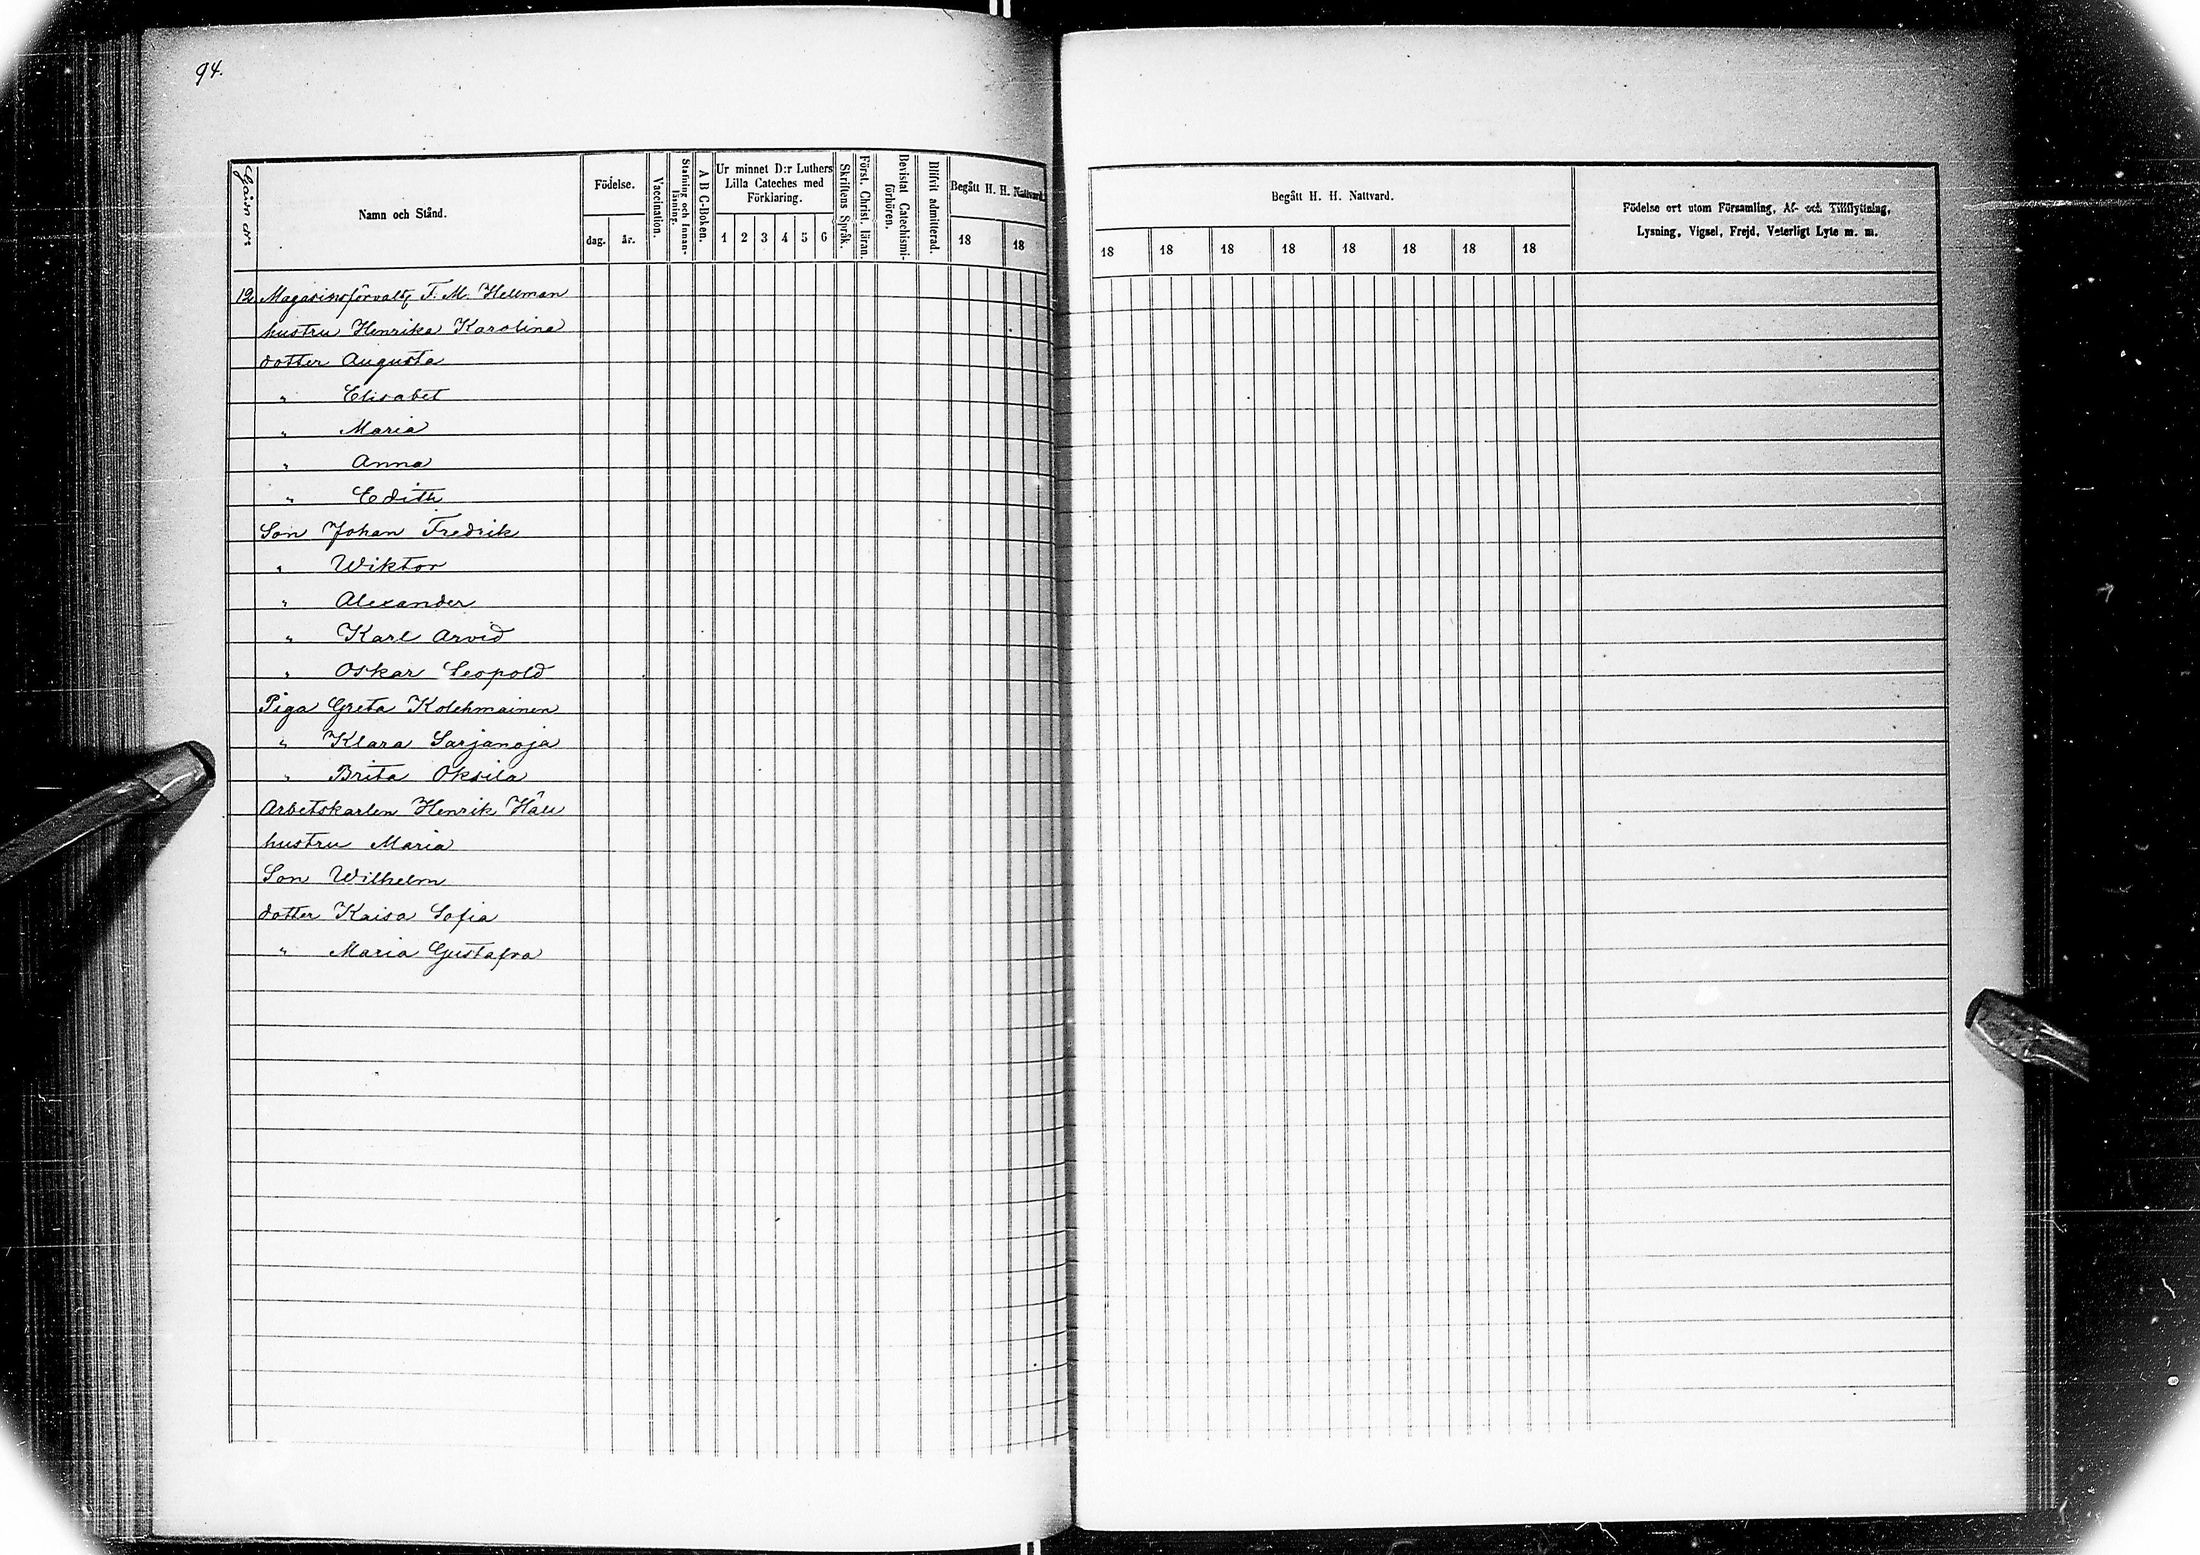 94.
Gård n:r
Namn och Stånd.
Födelse.
dag. år.
Vaccination.
Stafning och Innanläsning.
A B C-Boken.
Ur minnet D:r Luthers
Lilla Cateches med
Förklaring.
1 2 3 4 5 6
Skriftens Språk.
Först. Christ. läran.
Bevistat Catechismiförhören.
Blifvit admitterad.
Begått H. H. Nattvard.
18 18
Begått H. H. Nattvard.
18 18 18 18 18 18 18 18
Födelse ort utom Församling, Af- och Tillflyttning,
Lysning, Vigsel, Frejd, Veterligt Lyte m. m.
12 Magasinsförvalt. F. M. Hellman
hustru Henrika Karolina
dotter Augusta
" Elisabet
" Maria
" Anna
" Edith
Son Johan Fredrik
" Wiktor
" Alexander
" Karl Arvid
" Oskar Leopold
Piga Greta Kolehmainen
" Klara Sarjanoja
" Brita Oksila
Arbetskarlen Henrik
hustru Maria
Son Wilhelm
dotter Kaisa Sofia
" Maria Gustafva